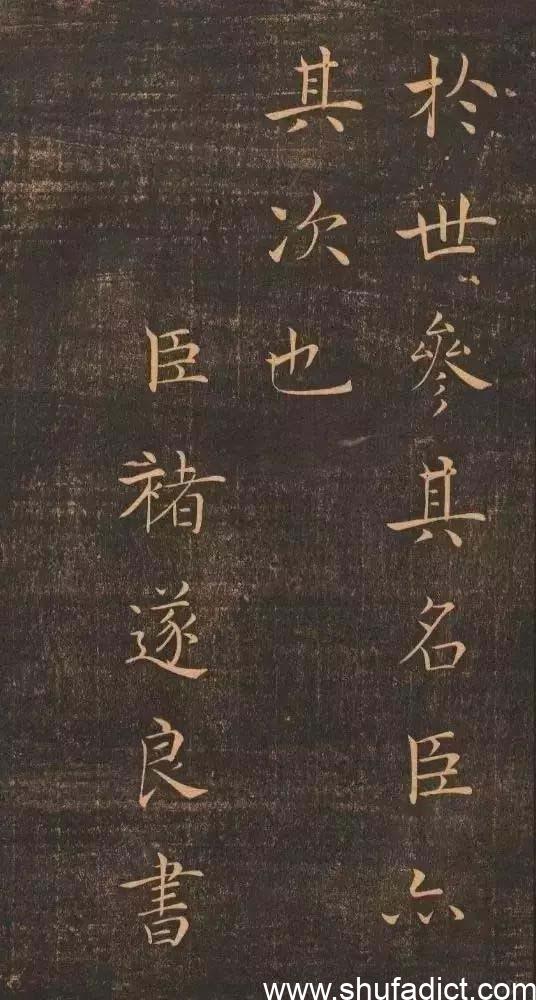 於世參其名臣亦
其次也
臣褚遂良書
www.shufadict.com